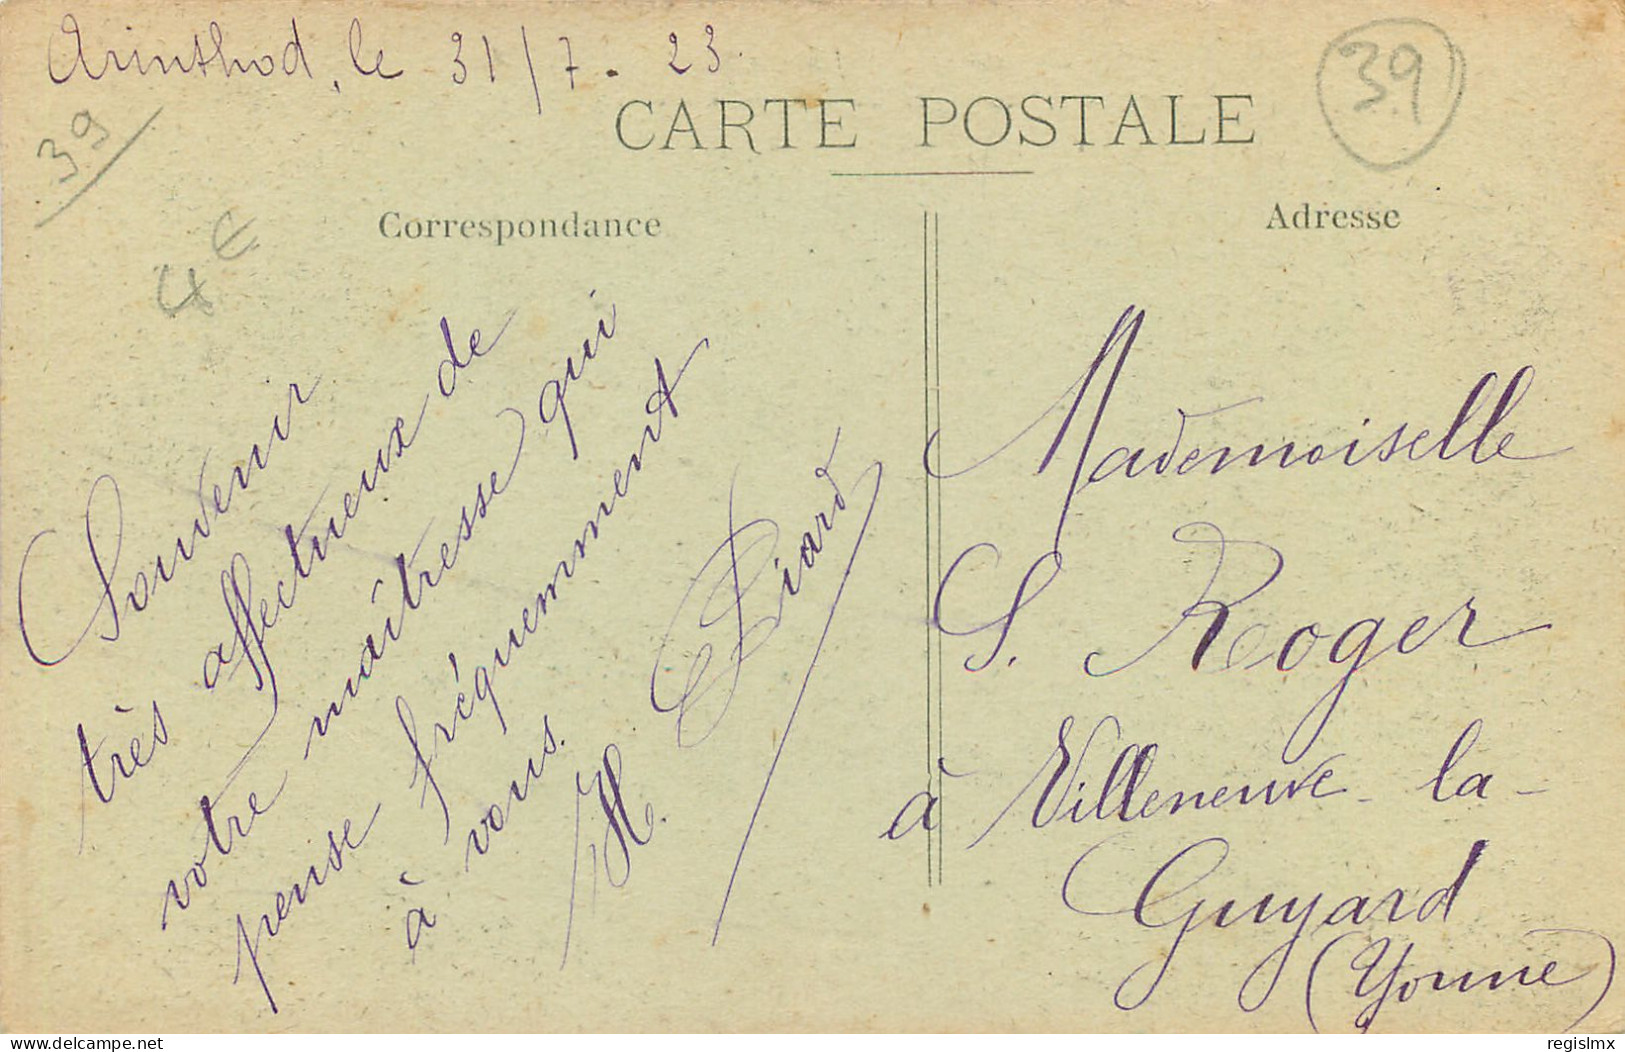 Arinthod, le 31/7. 23.
39
39
CARTE POSTALE
Correspondance
Adresse
4€
Souvenir
très affectueux de
votre maîtresse qui
pense fréquemment
à vous.
H.
Mademoiselle
S. Roger
à Villeneuve-la-
Guyard
(Yonne)
delcampe.net
regislmx